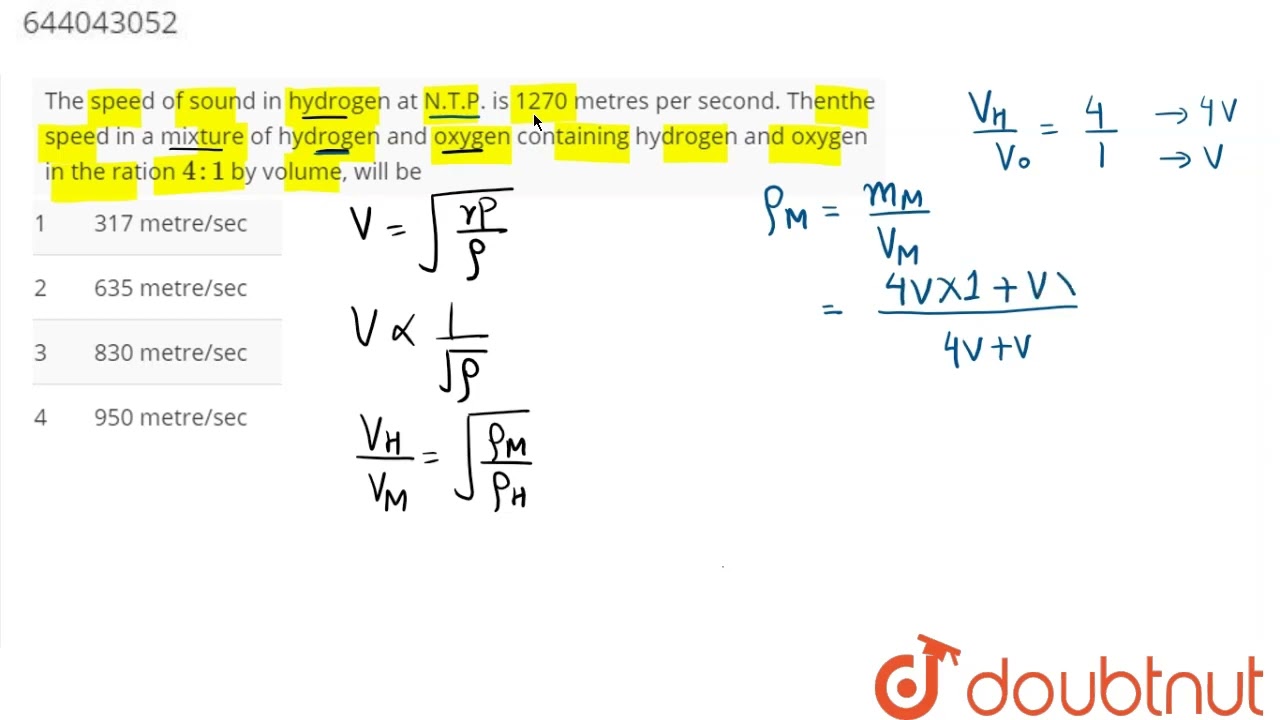 644043052
The speed of sound in hydrogen at N.T.P. is 1270 metres per second. Thenthe
speed in a mixture of hydrogen and oxygen containing hydrogen and oxygen
in the ration 4:1 by volume, will be
1 317 metre/sec
2 635 metre/sec
3 830 metre/sec
4 950 metre/sec
V = √(γP/ρ)
V ∝ 1/√ρ
V_H/V_M = √(ρ_M/ρ_H)
V_H/V_O = 4/1 → 4V
→ V
ρ_M = m_M/V_M
= (4V×1 + V\)/(4V+V)
doubtnut